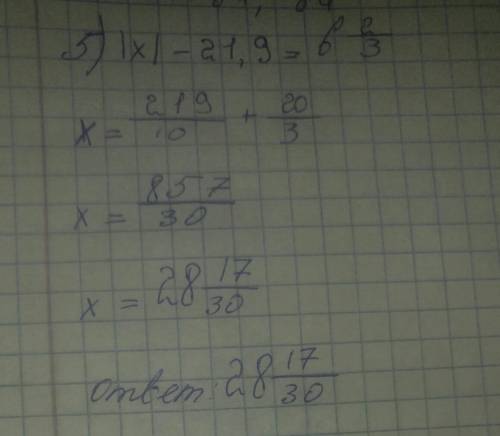 5) |x| - 21,9 = 6 2/3
x = 219/10 + 20/3
x = 857/30
x = 28 17/30
ответ: 28 17/30